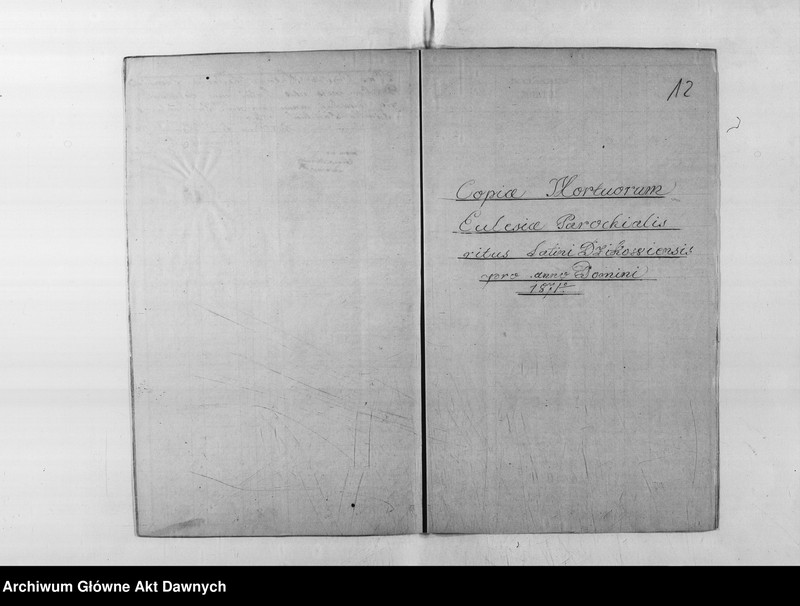 12
Copiæ Mortuorum
Eulesiæ Parochialis
ritus Latini Dzikowiensis
pro anno Domini
1871º
Archiwum Główne Akt Dawnych